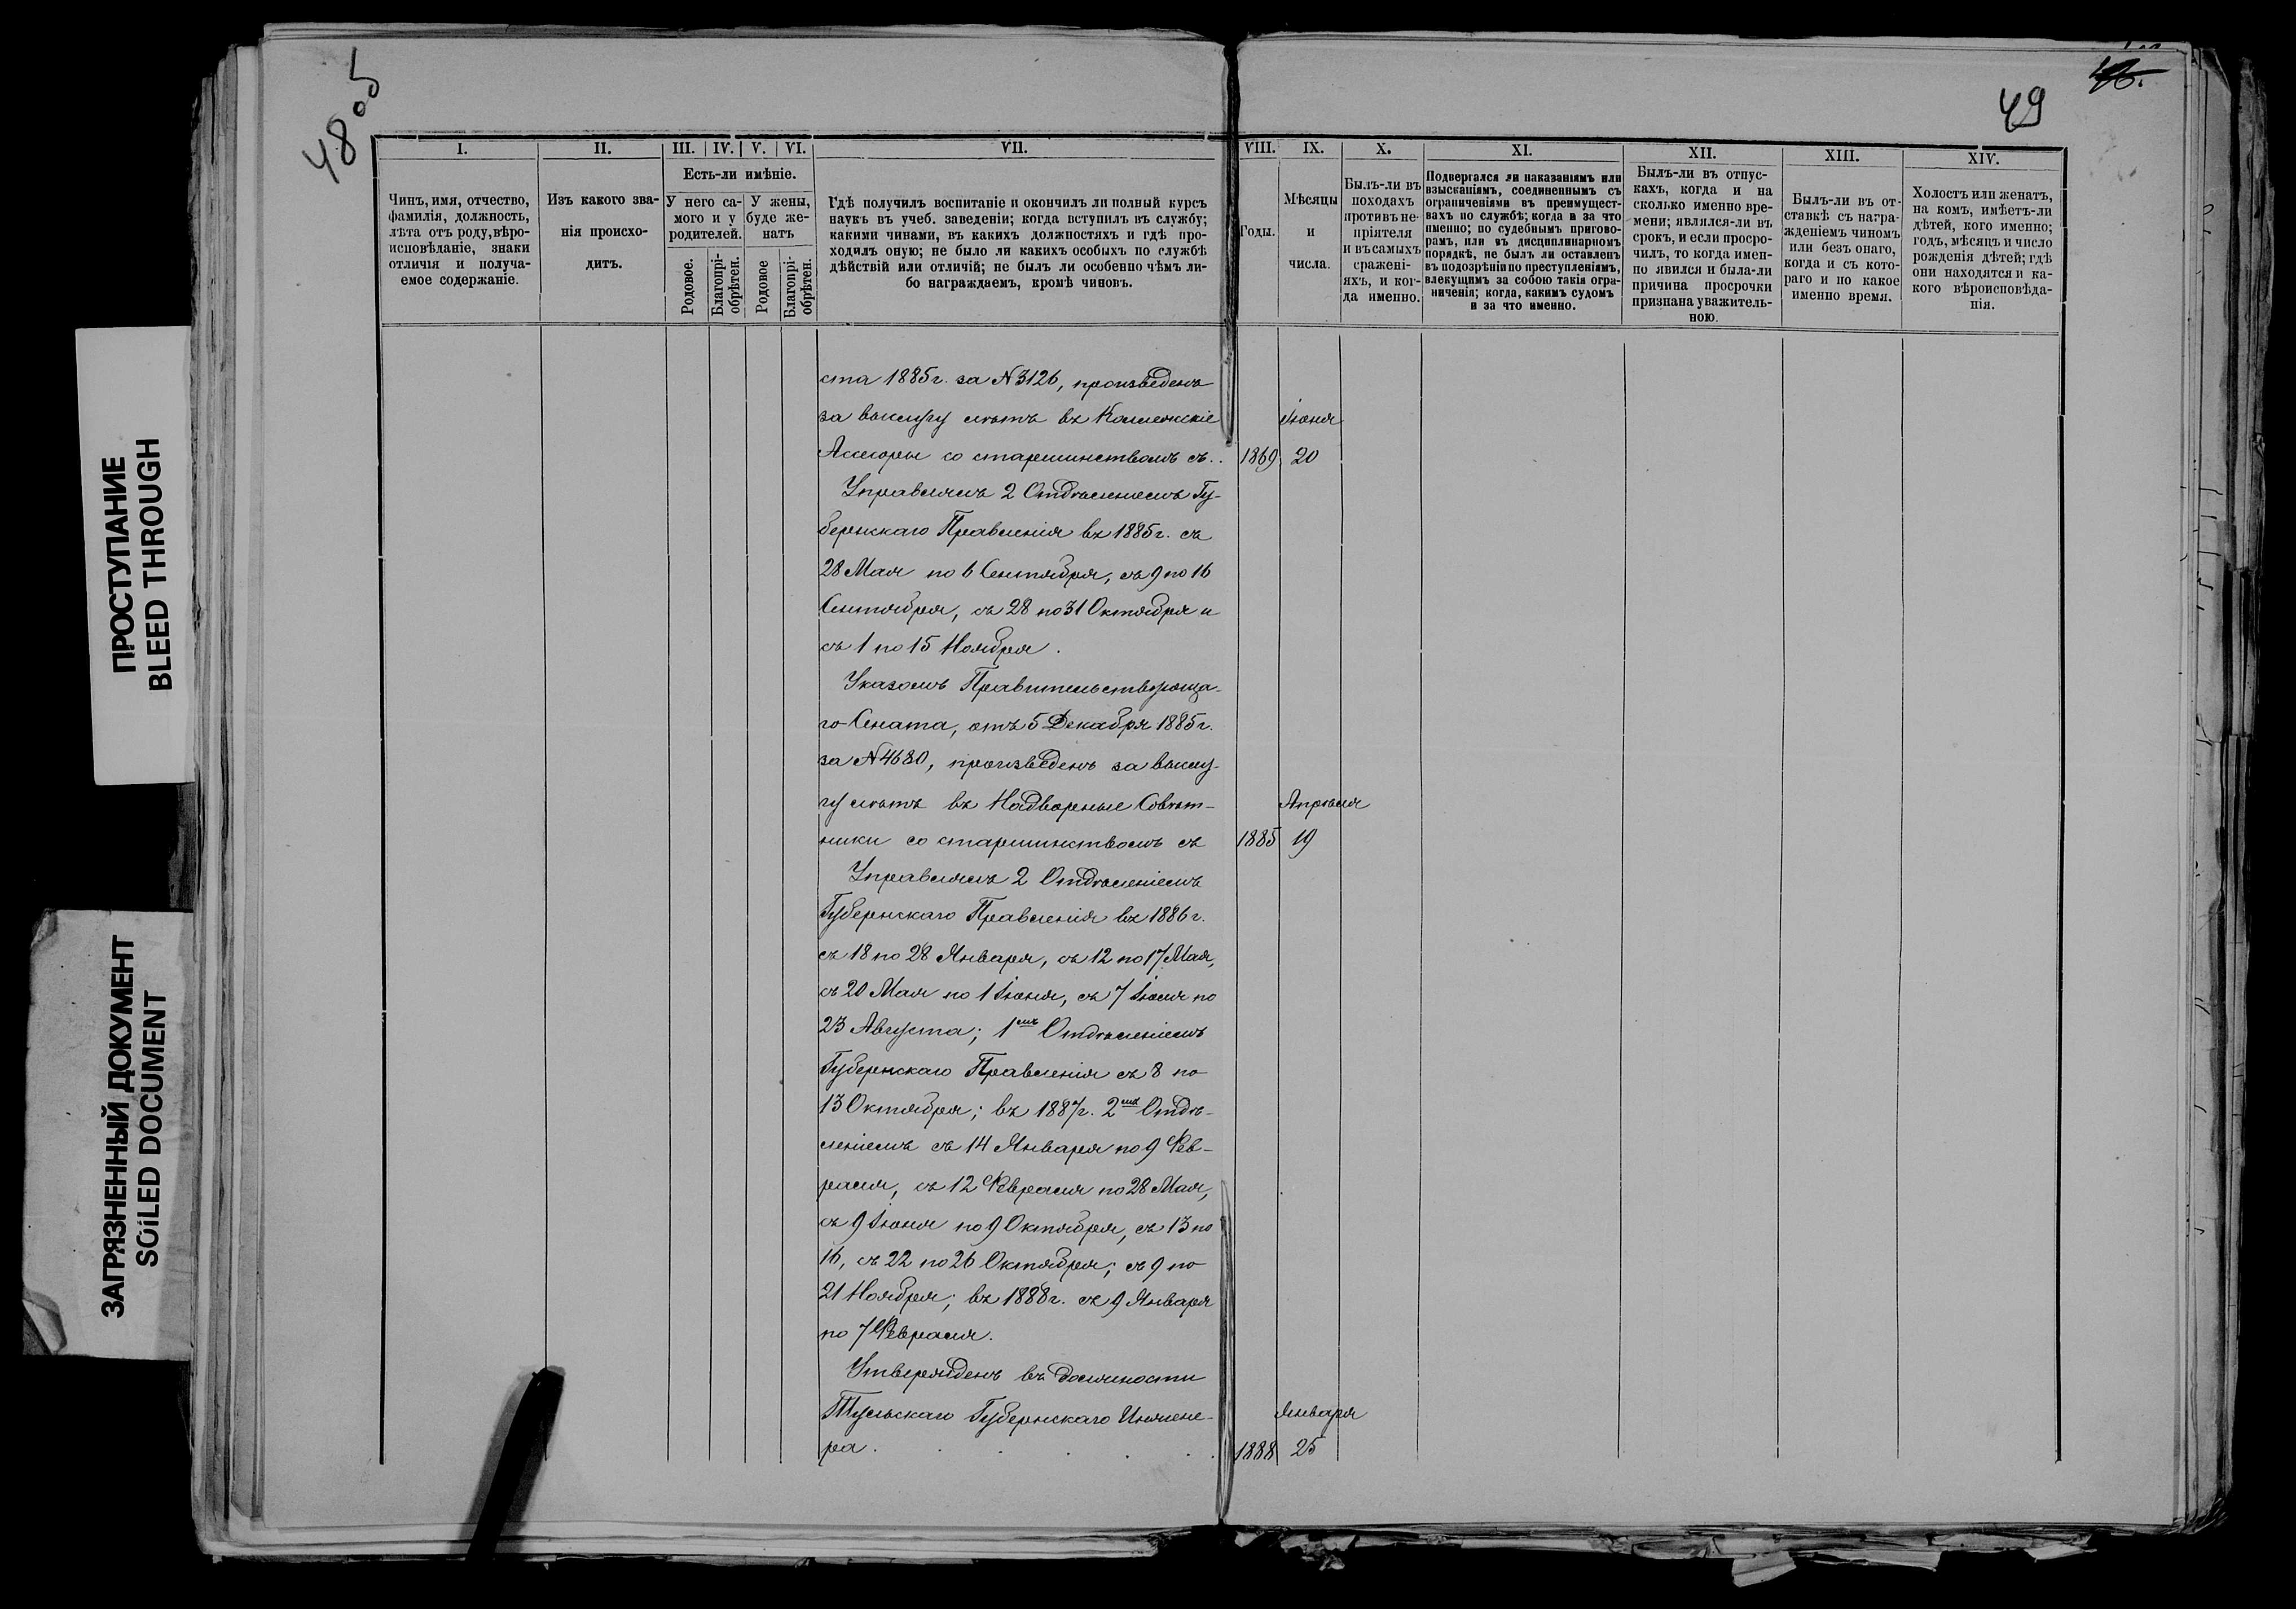 48 об
49
46.
ПРОСТУПАНИЕ
BLEED THROUGH
ЗАГРЯЗНЕННЫЙ ДОКУМЕНТ
SOILED DOCUMENT
I.
Чинъ, имя, отчество,
фамилія, должность,
лѣта отъ роду, вѣро-
исповѣданіе, знаки
отличія и получа-
емое содержаніе.
II.
Изъ какого зва-
нія происхо-
дитъ.
III. IV. V. VI.
Есть-ли имѣніе.
У него са-
мого и у
родителей.
У жены,
буде же-
натъ
Родовое.
Благопрі-
обрѣтен.
Родовое
Благопрі-
обрѣтен.
VII.
Гдѣ получилъ воспитаніе и окончилъ ли полный курсъ
наукъ въ учеб. заведеніи; когда вступилъ въ службу;
какими чинами, въ какихъ должностяхъ и гдѣ про-
ходилъ оную; не было ли какихъ особыхъ по службѣ
дѣйствій или отличій; не былъ ли особенно чѣмъ ли-
бо награждаемъ, кромѣ чиновъ.
VIII.
Годы.
IX.
Мѣсяцы
и
числа.
X.
Былъ-ли въ
походахъ
противъ не-
пріятеля
и въ самыхъ
сражені-
яхъ, и ког-
да именно.
XI.
Подвергался ли наказаніямъ или
взысканіямъ, соединеннымъ съ
ограниченіями въ преимущест-
вахъ по службѣ; когда и за что
именно; по судебнымъ пригово-
рамъ, или въ дисциплинарномъ
порядкѣ, не былъ ли оставленъ
въ подозрѣніи по преступленіямъ,
влекущимъ за собою такія огра-
ниченія; когда, какимъ судомъ
и за что именно.
XII.
Былъ-ли въ отпус-
кахъ, когда и на
сколько именно вре-
мени; являлся-ли въ
срокъ, и если просро-
чилъ, то когда имен-
но явился и была-ли
причина просрочки
признана уважитель-
ною.
XIII.
Былъ-ли въ от-
ставкѣ съ награ-
жденіемъ чиномъ
или безъ онаго,
когда и съ кото-
раго и по какое
именно время.
XIV.
Холостъ или женатъ,
на комъ, имѣетъ-ли
дѣтей, кого именно;
годъ, мѣсяцъ и число
рожденія дѣтей; гдѣ
они находятся и ка-
кого вѣроисповѣда-
нія.
ста 1885г. за № 3126, произведенъ
за выслугу лѣтъ въ Коллежскіе Іюня
Ассесоры со старшинствомъ съ . . 1869 20
Управлялъ 2 Отдѣленіемъ Гу-
бернскаго Правленія въ 1885г. съ
28 Мая по 6 Сентября, съ 9 по 16
Сентября, съ 28 по 31 Октября и
съ 1 по 15 Ноября.
Указомъ Правительствующа-
го Сената, отъ 5 Декабря 1885г.
за № 4680, произведенъ за выслу-
гу лѣтъ въ Надворные Совѣт- Апрѣля
ники со старшинствомъ съ 1885 19
Управлялъ 2 Отдѣленіемъ
Губернскаго Правленія въ 1886г.
съ 18 по 28 Января, съ 12 по 17 Мая,
съ 20 Мая по 1 Іюня, съ 7 Іюля по
23 Августа; 1мъ Отдѣленіемъ
Губернскаго Правленія съ 8 по
13 Октября; въ 1887г. 2мъ Отдѣ-
леніемъ съ 14 Января по 9 Фев-
раля, съ 12 Февраля по 28 Мая,
съ 9 Іюня по 9 Октября, съ 13 по
16, съ 22 по 26 Октября; съ 9 по
21 Ноября; въ 1888г. съ 9 Января
по 7 Февраля.
Утвержденъ въ должности
Тульскаго Губернскаго Инжене- Января
ра . . . . . 1888 25